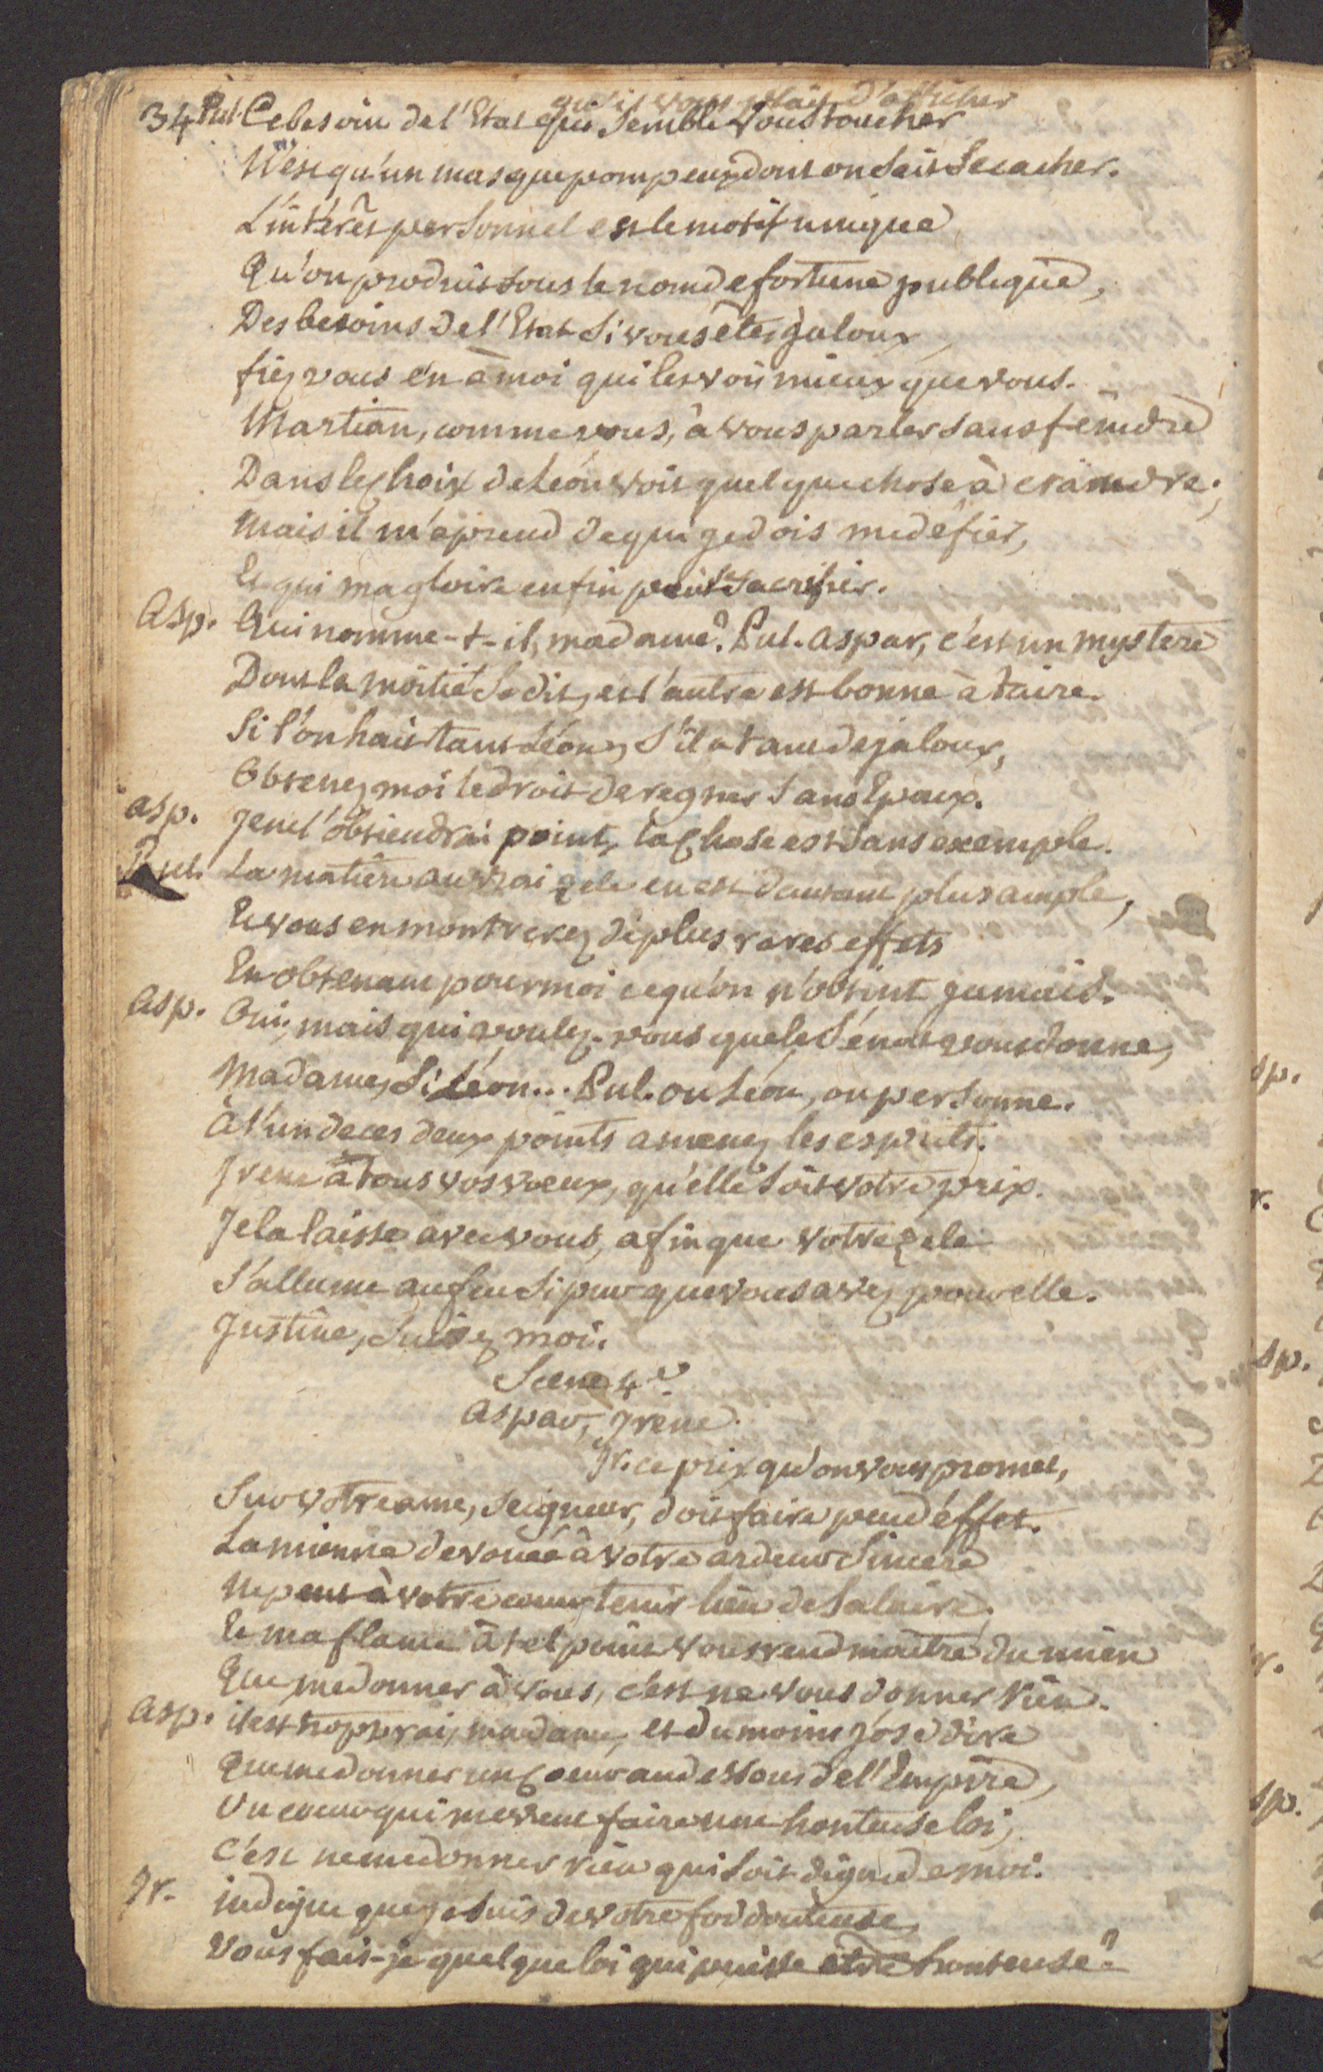 qu'il vous plait d'afficher
34 Pul. Ce besoin de l'Etat qui semble vous toucher
N'est qu'un masque pompeux dont on sait se cacher.
L'intérêt personnel est le motif unique
Qu'on produit sous le nom de fortune publique,
Des besoins de l'Etat si vous êtes jaloux
fiez vous en à moi qui les vois mieux que vous.
Martian, comme vous, à vous parler sans feindre
Dans le choix de Léon voit quelque chose à craindre;
Mais il m'aprend de qui je dois me défier,
Et qui ma gloire enfin peut sacrifier.
Asp. Qui nomme-t-il, madame? Pul. Aspar, c'est un mystere
Dont la moitié se dit, et l'autre est bonne à taire.
Si l'on hait tant Léon, s'il a tant de jaloux,
Obtenez moi le droit de regner sans Epoux.
asp. Je ne l'obtiendrai point, la chose est sans exemple.
Pul. La matiere au vrai zele en est dautant plus ample,
Et vous en montrerez de plus rares effets
En obtenant pour moi ce qu'on n'obtint jamais.
Asp. Oui, mais qui voulez-vous que le Sénat vous donne,
Madame, Si Léon... Pul. ou Léon, ou personne.
à l'un de ces deux points amenez les esprits.
Irene à tous vos voeux, qu'elle soit votre prix.
Je la laisse avec vous, afin que votre zele
S'allume au feu si pur que vous avez pour elle.
Justine, suivez moi.
Scene 4e.
Aspar, Irene.
Ir. ce prix qu'on vous promet,
Sur votre ame, seigneur, doit faire peu d'éffet.
La mienne devouée à votre ardeur sincere
Ne peut à votre coeur tenir lieu de salaire;
Et ma flame à tel point vous rend maitre du mien
Que me donner à vous, c'est ne vous donner rien.
Asp. il est trop vrai, madame, et du moins j'ose dire
Que me donner un coeur au dessous de l'Empire,
Un coeur qui me veut faire une honteuse loi,
C'est ne me donner rien qui soit digne de moi.
Ir. indigne que je suis de votre foi douteuse,
Vous fais-je quelque loi qui puisse etre honteuse?